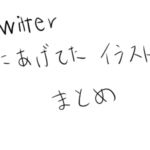 witter
にあげてた イラスト
まとめ